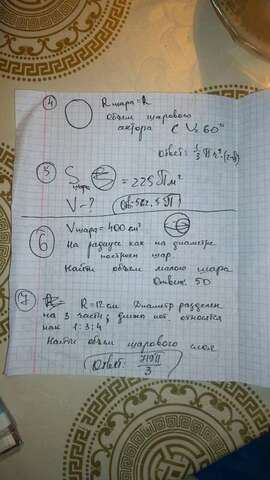 ④ R шара = R
Объем шарового
сектора с 60°
Ответ: 1/3 П R³ (2-√3)
⑤ S шара = 225 П м²
V - ? От. 562,5 П
⑥ V шара = 400 см³
На радиусе как на диаметре
построен шар
Найти объем малого шара
Ответ: 50
⑦ R = 12 см Диаметр разделен
на 3 части, длины кот. относятся
как 1:3:4
Найти объем шарового слоя
Ответ: